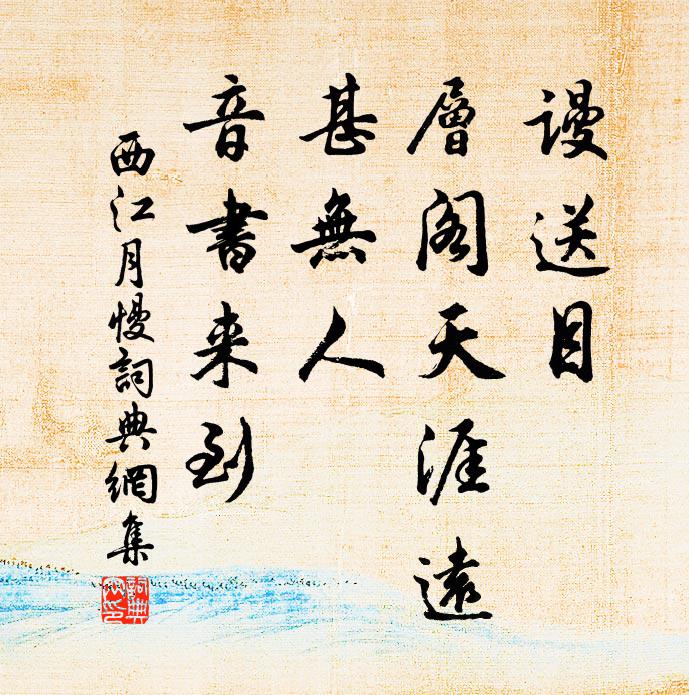 謾送目
層阁天涯遠
甚無人
音書来到
西江月慢詞典網集